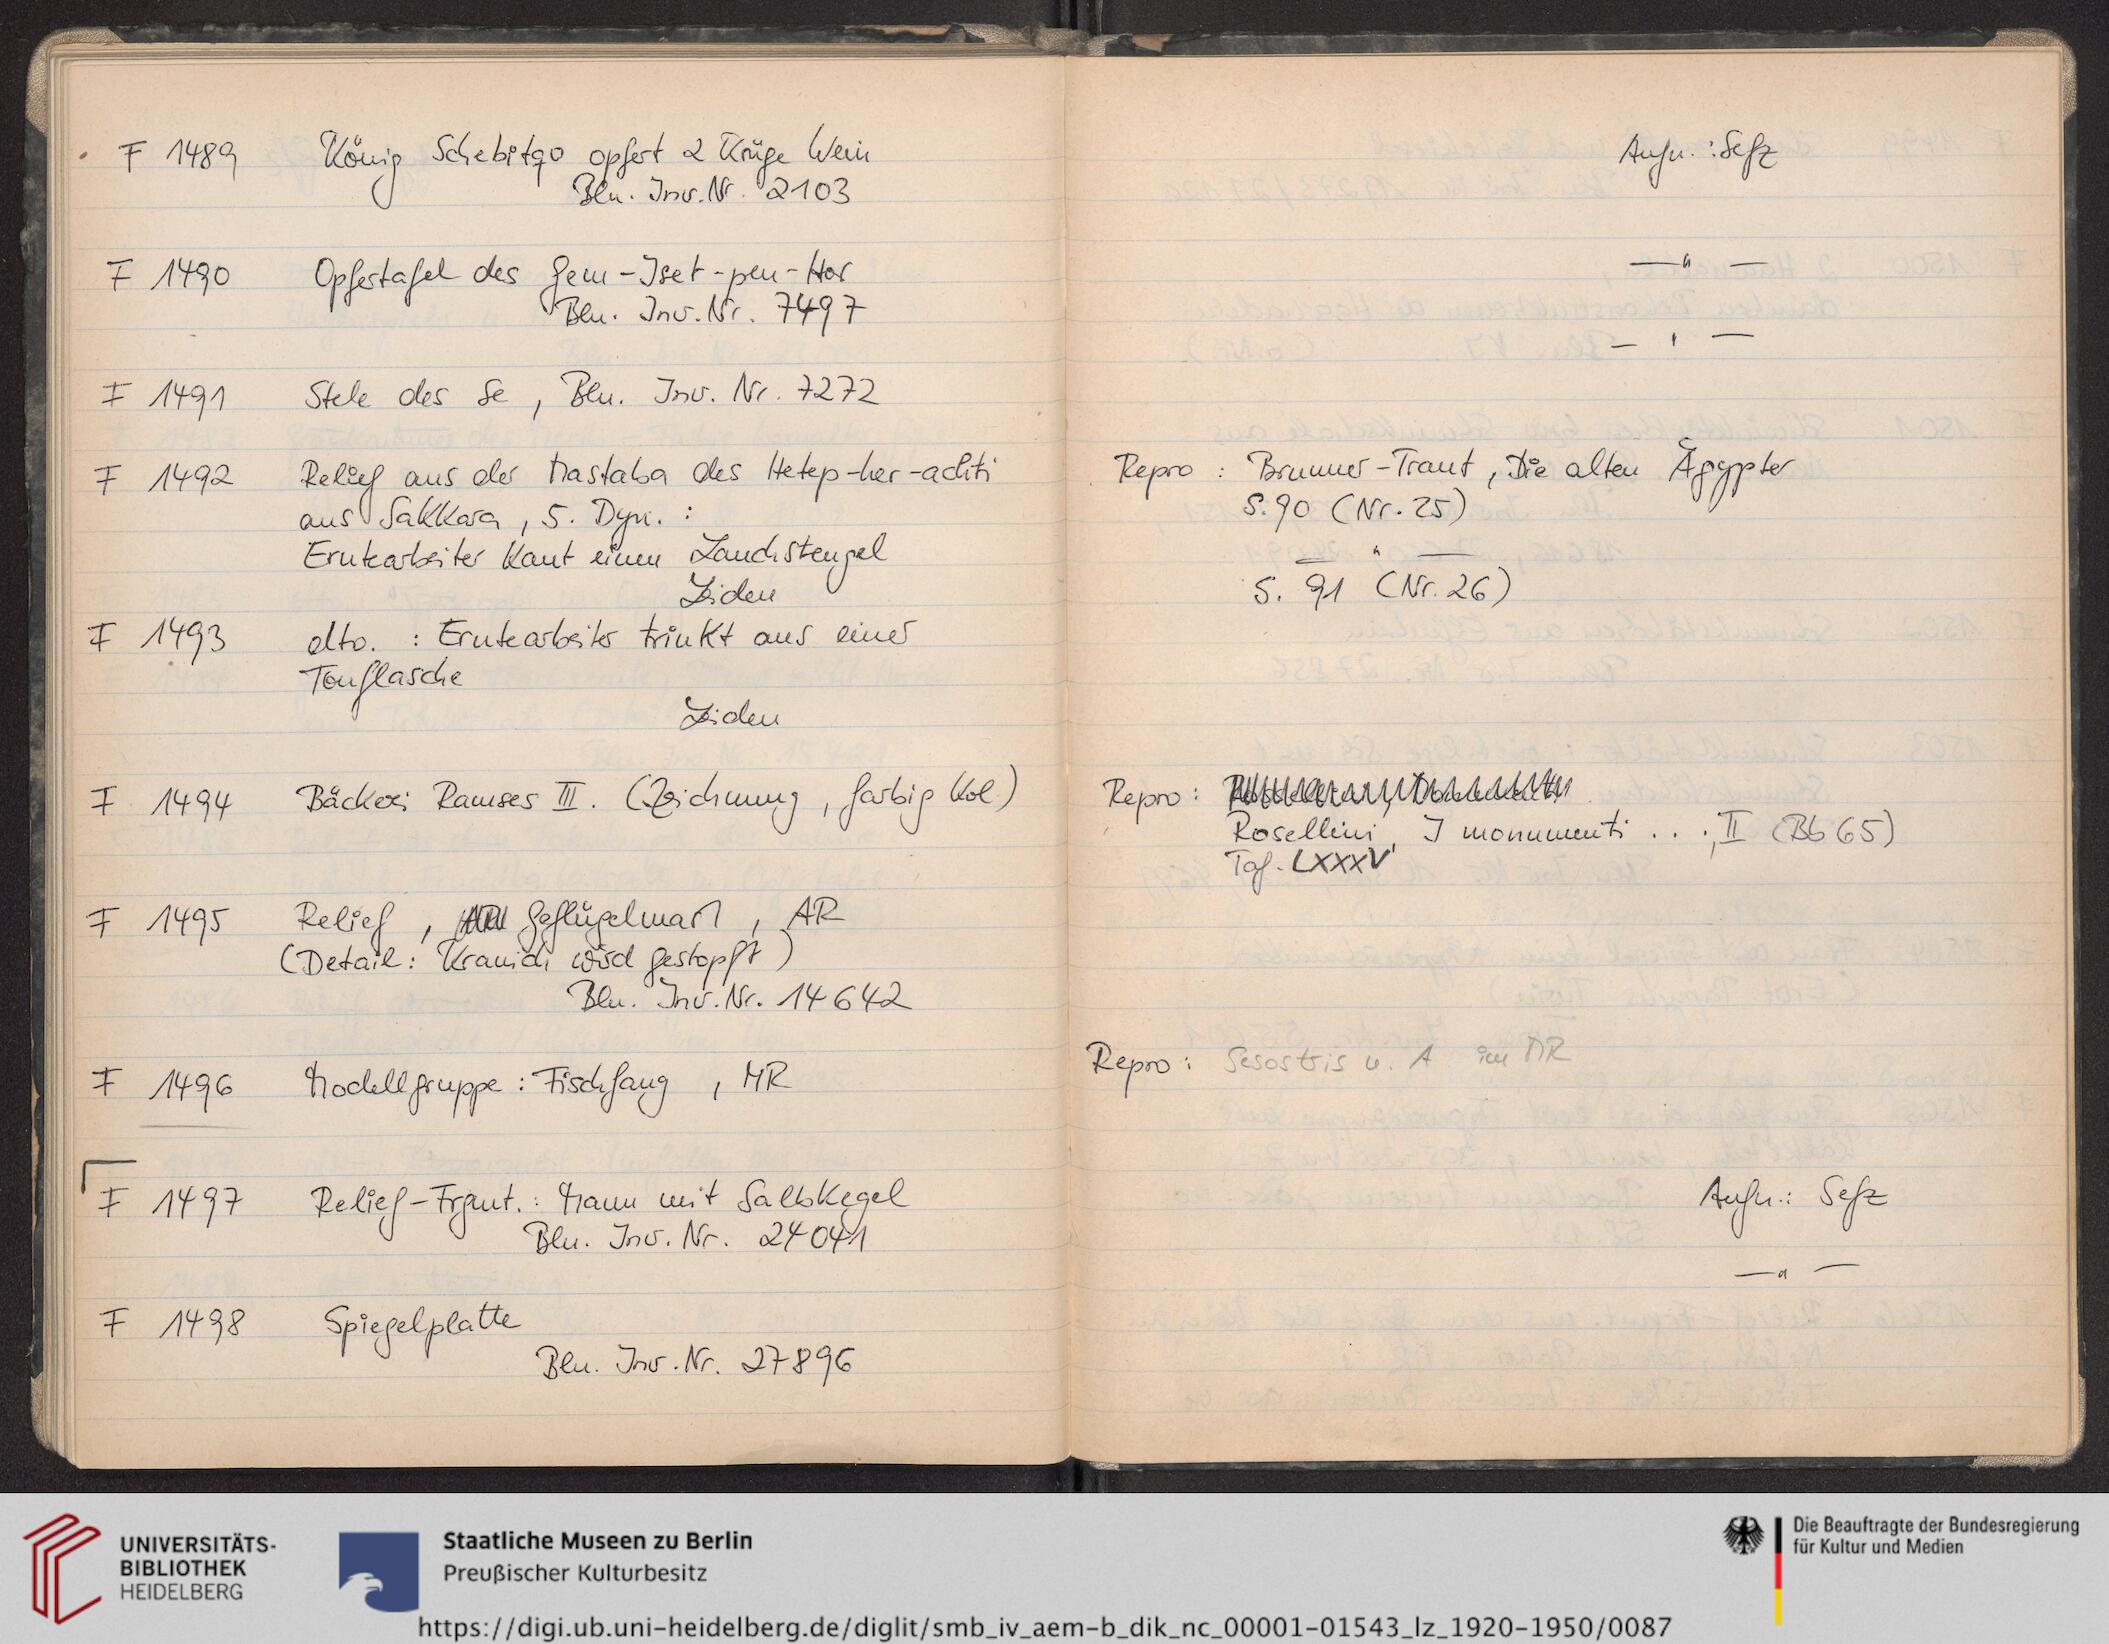 F 1489 König Schebitqo opfert 2 Krüge Wein
Bln. Inv. Nr. 2103
F 1490 Opfertafel des Gem-Iset-pen-Hor
Bln. Inv. Nr. 7497
F 1491 Stele des Se, Bln. Inv. Nr. 7272
F 1492 Relief aus der Mastaba des Hetep-her-achti
aus Sakkara, 5. Dyn. :
Erntearbeiter kaut einen Lauchstengel
Leiden
F 1493 dto. : Erntearbeiter trinkt aus einer
Tonflasche
Leiden
F 1494 Bäckerei Ramses III. (Zeichnung, farbig kol.)
F 1495 Relief, Geflügelmast, AR
(Detail: Kranich wird gestopft)
Bln. Inv. Nr. 14642
F 1496 Modellgruppe: Fischfang, MR
F 1497 Relief-Frgmt.: Mann mit Salbkegel
Bln. Inv. Nr. 24041
F 1498 Spiegelplatte
Bln. Inv. Nr. 27896
Aufn.: Sefz
— " —
— " —
Repro : Brunner-Traut, Die alten Ägypter
S. 90 (Nr. 25)
— " —
S. 91 (Nr. 26)
Repro :
Rosellini, I monumenti . . . , II (Bb 65)
Taf. LXXXV
Repro : Sesostris u. A im MR
Aufn.: Sefz
— " —
UNIVERSITÄTS-
BIBLIOTHEK
HEIDELBERG
Staatliche Museen zu Berlin
Preußischer Kulturbesitz
Die Beauftragte der Bundesregierung
für Kultur und Medien
https://digi.ub.uni-heidelberg.de/diglit/smb_iv_aem-b_dik_nc_00001-01543_lz_1920-1950/0087